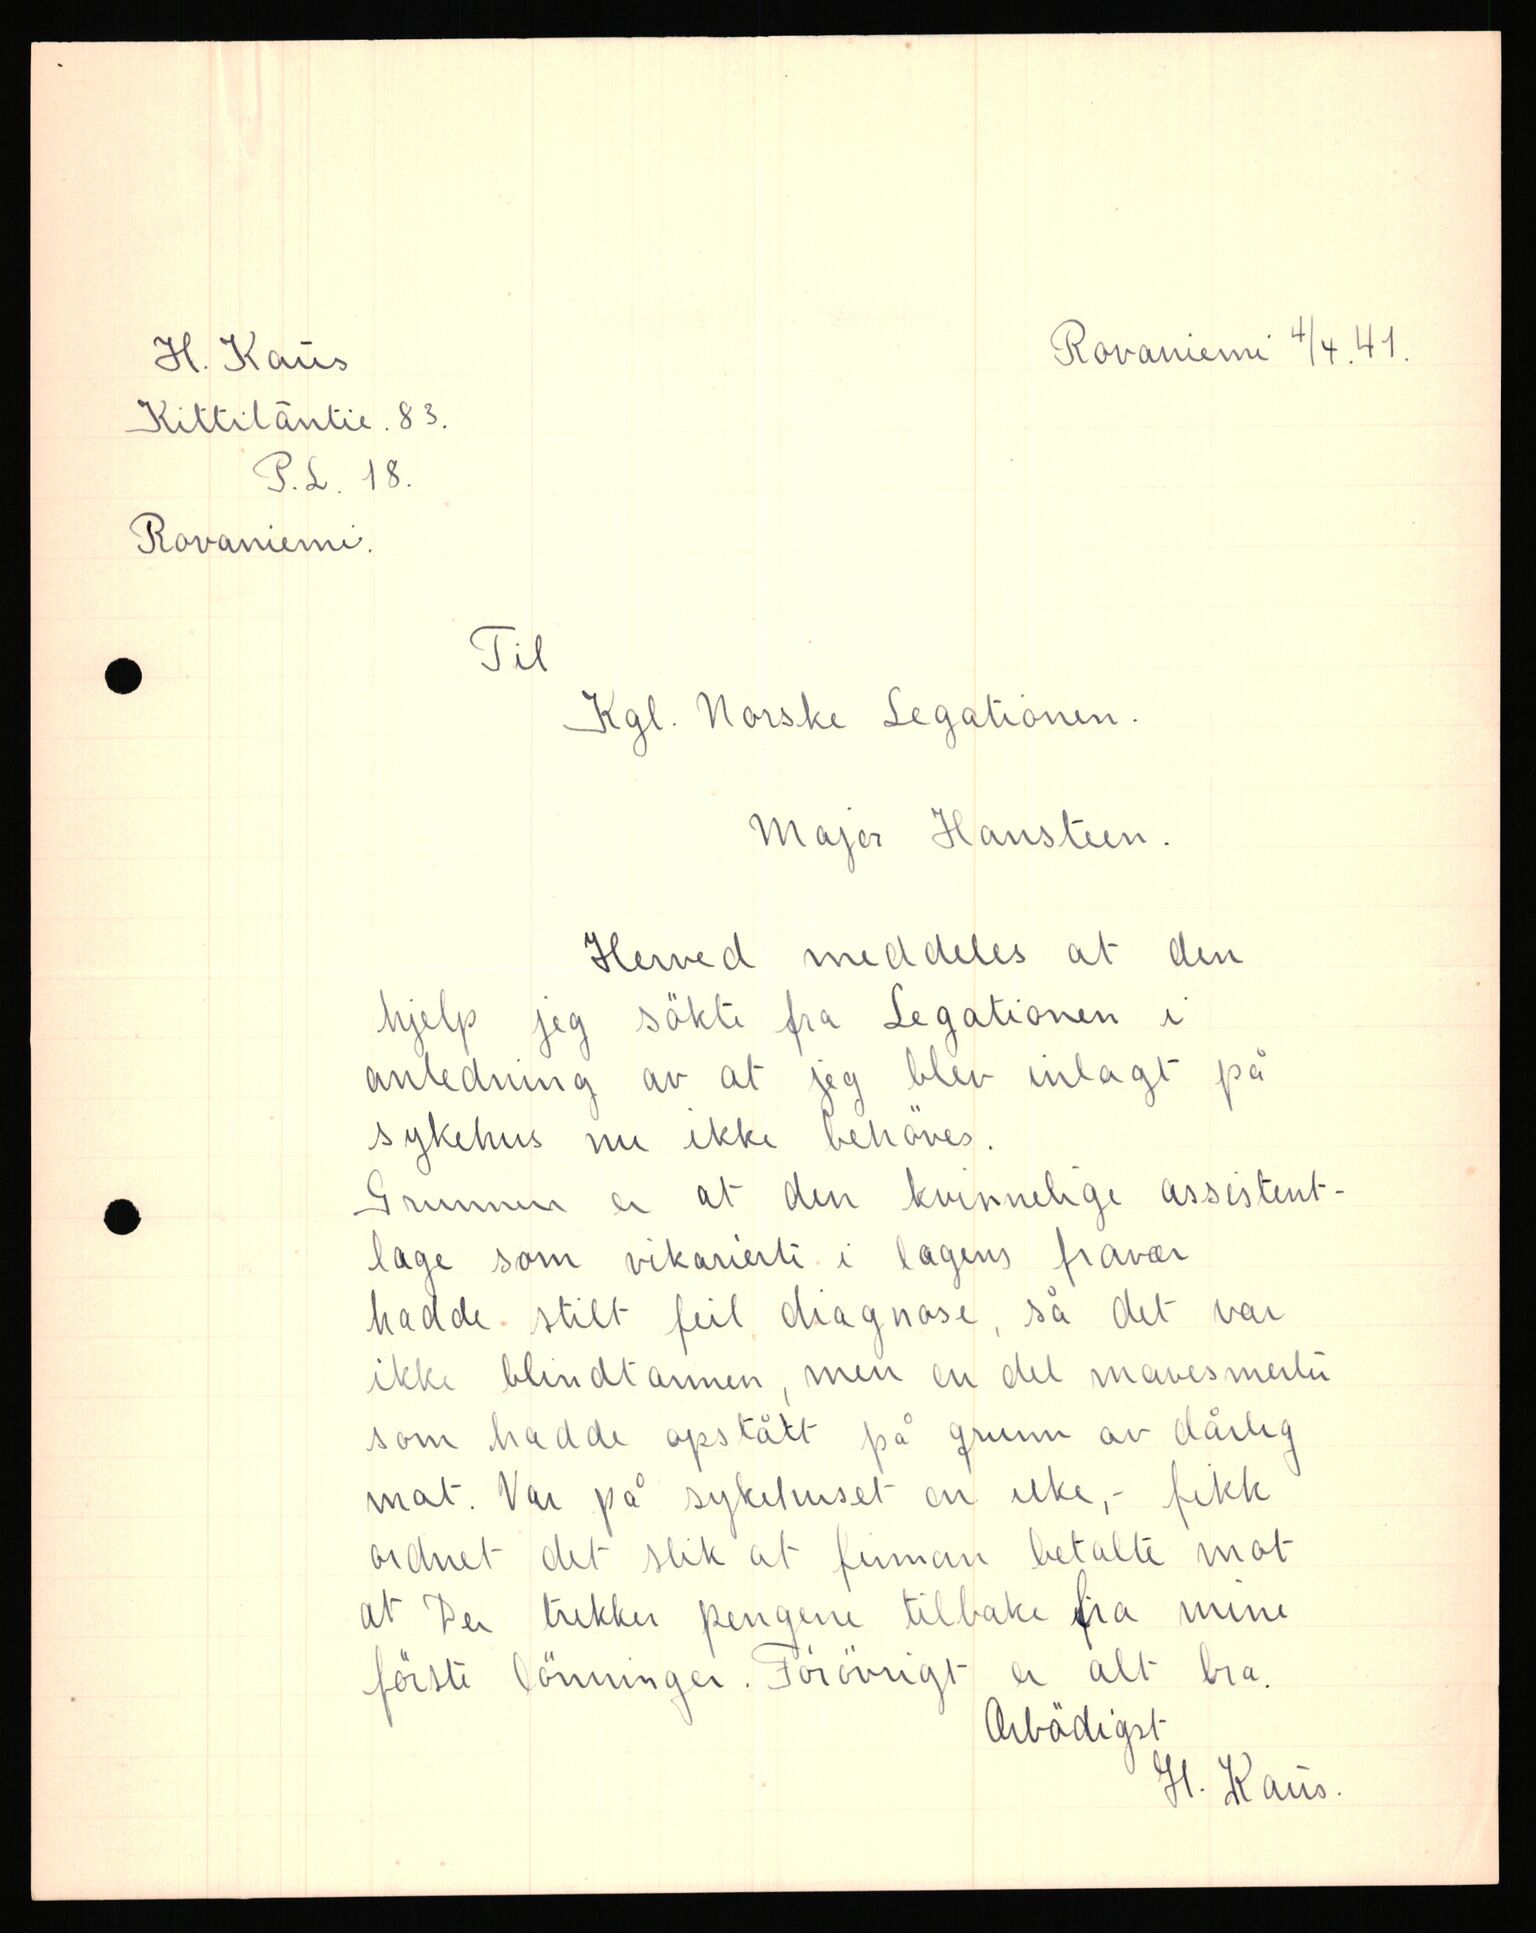 H. Kaūs
Rovaniemi 4/4.41.
Kittiläntie. 83.
P.L. 18.
Rovaniemi.
Til
Kgl. Norske Legationen.
Major Hansteen.
Herved meddeles at den
hjelp jeg sökte fra Legationen i
anledning av at jeg blev inlagt på
sykehus nu ikke behöves.
Grunnen er at den kvinnelige assistent-
lage som vikarierte i lagens fravær
hadde stilt feil diagnose, så det var
ikke blindtarmen, men en del mavesmerter
som hadde opstått på grunn av dårlig
mat. Var på sykehuset en uke,- fikk
ordnet det slik at firman betalte mot
at De trekker pengene tilbake fra mine
förste lönninger. Förövrigt er alt bra.
Ærbödigst
H. Kaūs.